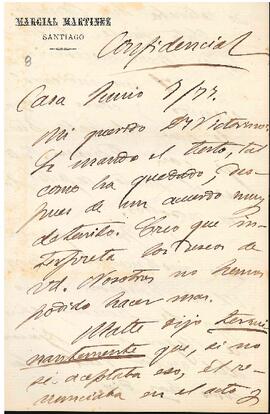 MARCIAL MARTINEZ
SANTIAGO
8
Confidencial
Casa Junio 7/77.
Mi querido Dn Victorino:
Le mando el testo, tal
como ha quedado, des-
pues de un acuerdo muy
detenido. Creo que in-
terpreta los deseos de
Vd. Nosotros no hemos
podido hacer mas.
Matte dijo termi-
nantemente que, si no
se aceptaba eso, él re-
nunciaba en el acto